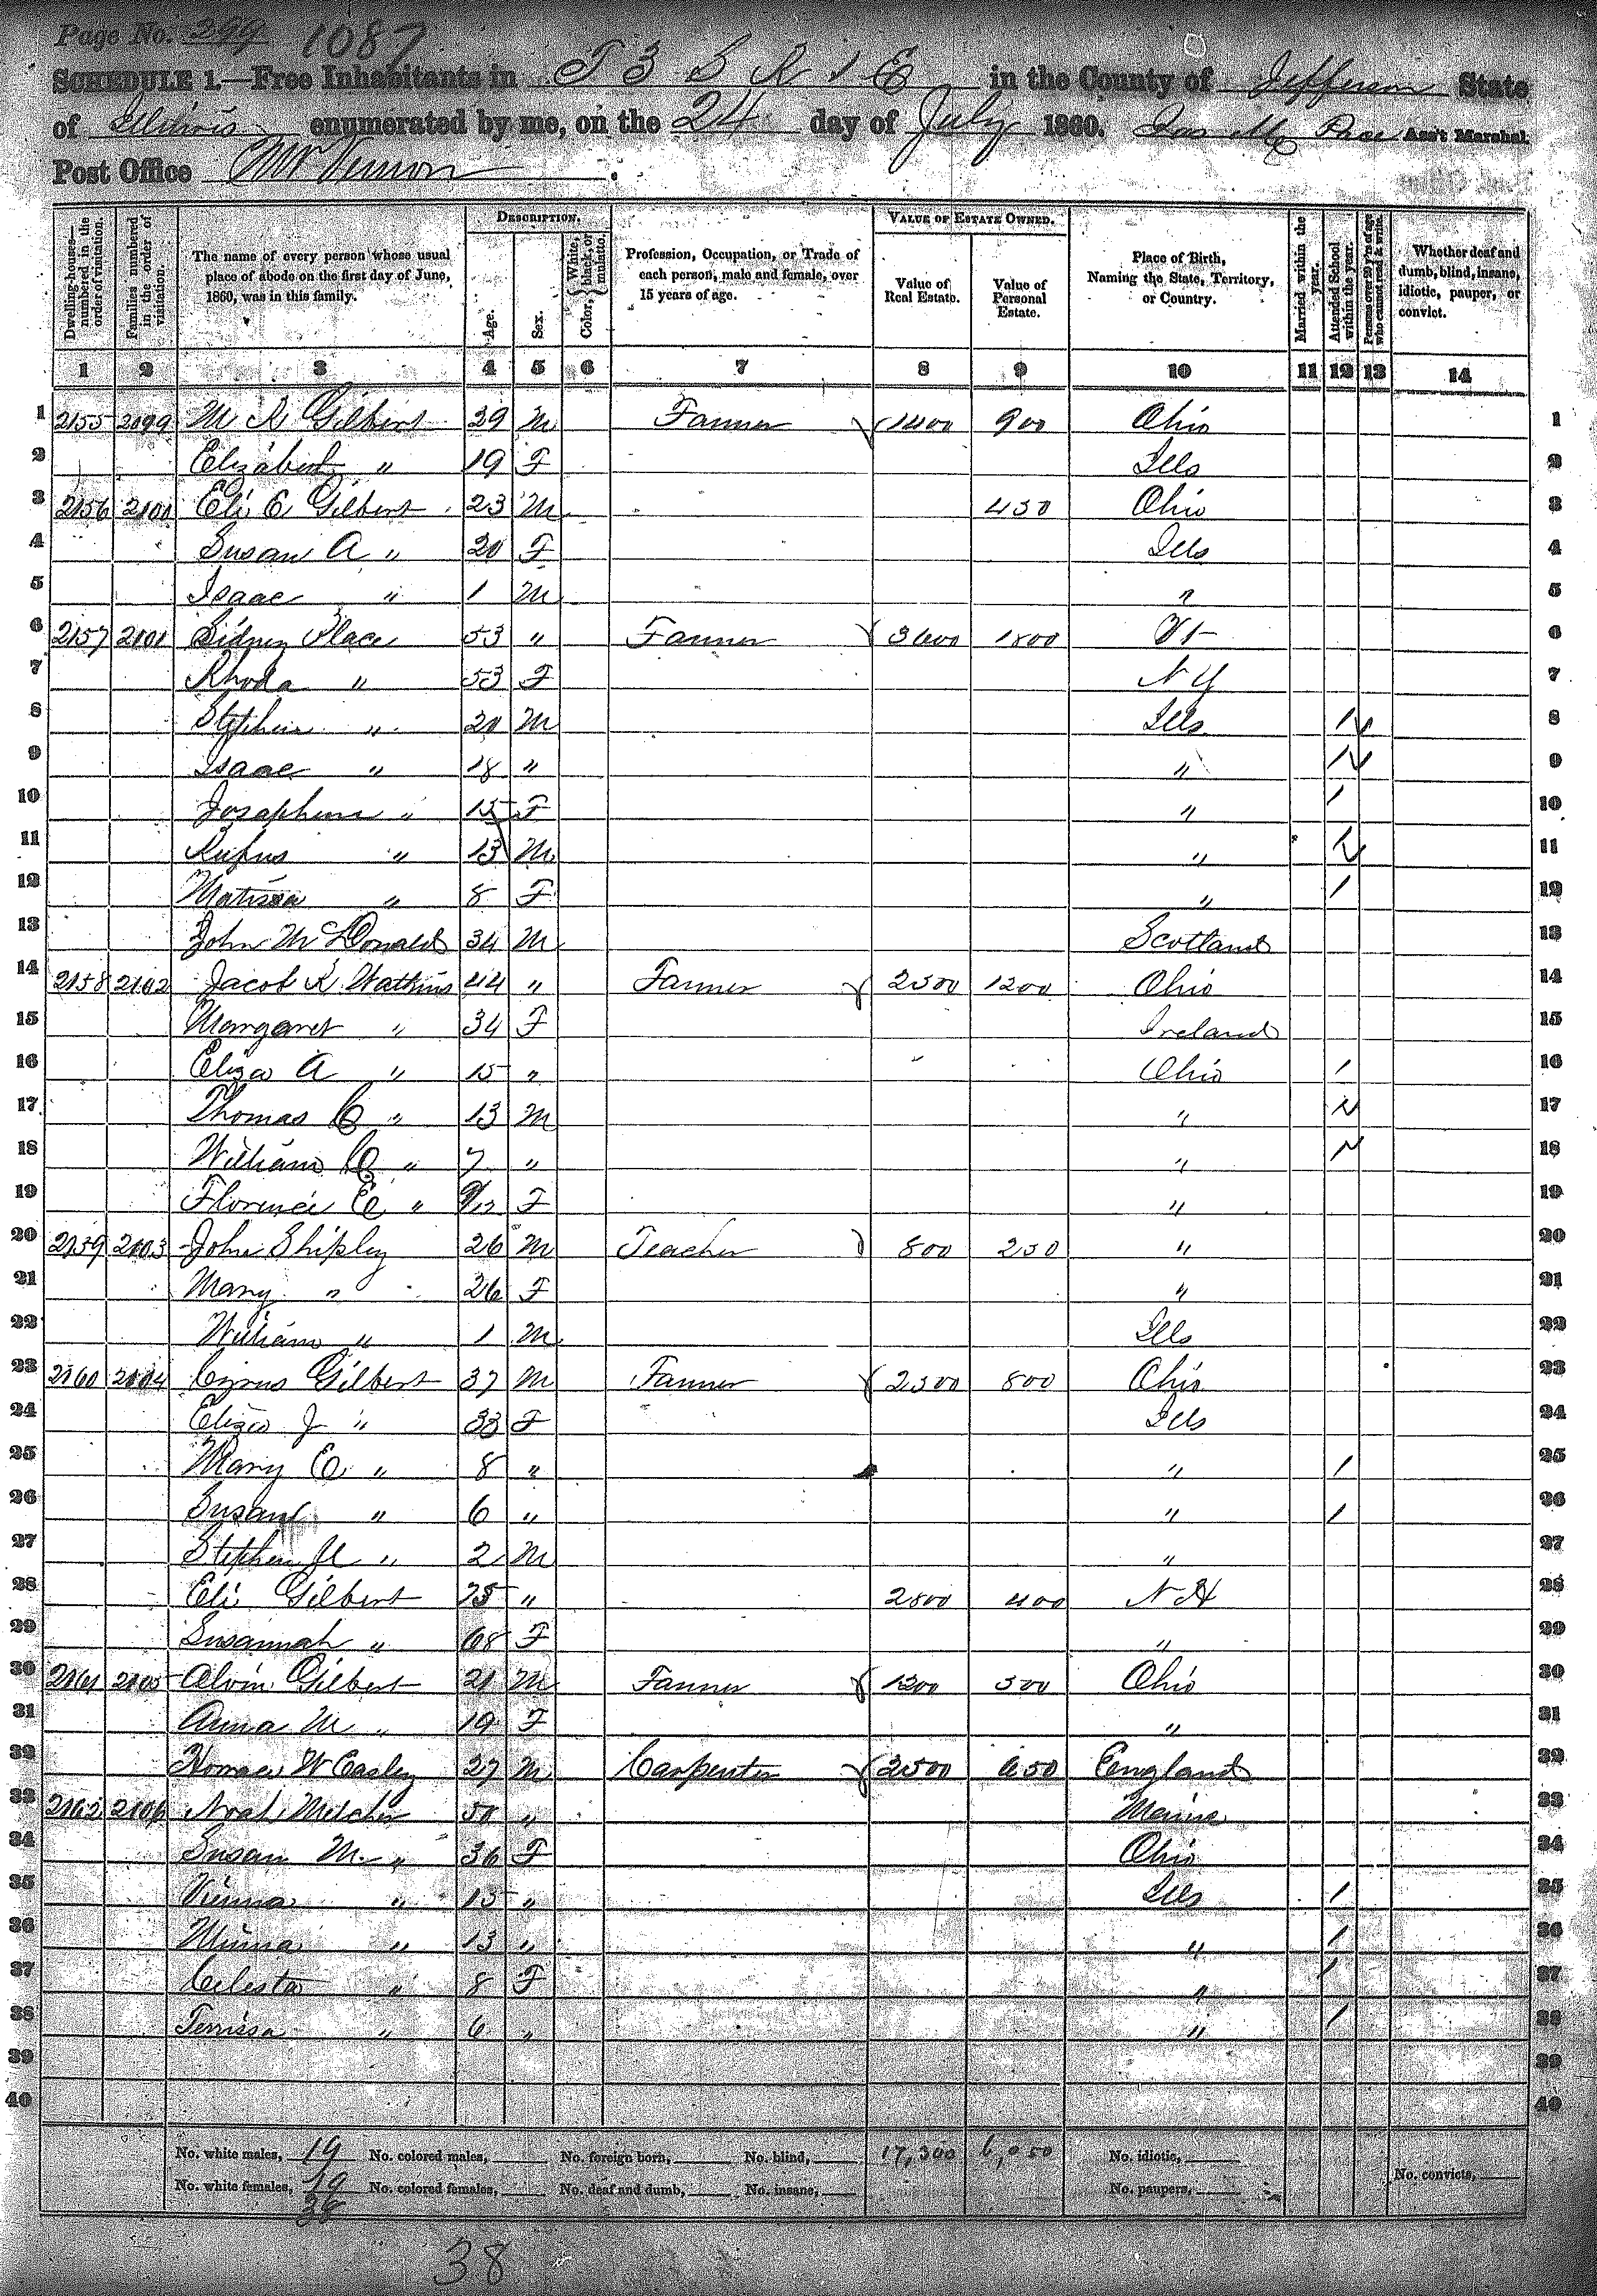 Page No. 399 1087
SCHEDULE 1.—Free Inhabitants in T 3 S R 1 E in the County of Jefferson State
of Illinois enumerated by me, on the 24 day of July 1860. Ass't Marshal.
Post Office Mt Vernon.
Dwelling-houses—numbered in the order of visitation. Families numbered in the order of visitation. The name of every person whose usual place of abode on the first day of June, 1860, was in this family. DESCRIPTION. Age. Sex. Color, {White, black, or mulatto. Profession, Occupation, or Trade of each person, male and female, over 15 years of age. VALUE OF ESTATE OWNED. Value of Real Estate. Value of Personal Estate. Place of Birth, Naming the State, Territory, or Country. Married within the year. Attended School within the year. Persons over 20 y'rs of age who cannot read & write. Whether deaf and dumb, blind, insane, idiotic, pauper, or convict.
1 2 3 4 5 6 7 8 9 10 11 12 13 14
1 2155 2099 M R Gilbert 29 M Farmer 1400 900 Ohio 1
2 Elizabeth " 19 F Ills 2
3 2156 2100 Eli C Gilbert 23 M 450 Ohio 3
4 Susan A " 20 F Ills 4
5 Isaac " 1 M " 5
6 2157 2101 Sidney Place 53 " Farmer 3600 1800 Vt 6
7 Rhoda " 53 F N Y 7
8 Stephen " 20 M Ills 1 8
9 Isaac " 18 " " 1 9
10 Josaphine " 15 F " 1 10
11 Rufus " 13 M " 1 11
12 " 8 F " 1 12
13 John McDonald 34 M Scotland 13
14 2158 2102 Jacob K Watkins 44 " Farmer 2500 1200 Ohio 14
15 Margaret " 34 F Ireland 15
16 Eliza A " 15 " Ohio 1 16
17 Thomas C " 13 M " 1 17
18 William C " 7 " " 1 18
19 Florence E " 9/12 F " 19
20 2159 2103 John Shipley 26 M Teacher 800 250 " 20
21 Mary " 26 F " 21
22 William " 1 M Ills 22
23 2160 2104 Cyrus Gilbert 37 M Farmer 2300 800 Ohio 23
24 Eliza J " 33 F Ills 24
25 Mary E " 8 " " 1 25
26 Susan " 6 " " 1 26
27 Stephen " 2 M " 27
28 Eli Gilbert 75 " 2800 400 N H 28
29 Susannah " 68 F " 29
30 2161 2105 Alvin Gilbert 21 M Farmer 1300 300 Ohio 30
31 Anna M " 19 F " 31
32 W Easley 27 M Carpenter 2500 650 England 32
33 2162 2106 Noah Melcher 50 " Maine 33
34 Susan M. " 36 F Ohio 34
35 Vienna " 15 " Ills 1 35
36 Minna " 13 " " 1 36
37 Celesta " 8 F " 1 37
38 Terrissa " 6 " " 1 38
39 39
40 40
No. white males, 19 No. colored males, No. foreign born, No. blind, 17,300 6,050 No. idiotic,
No. white females, 19 No. colored females, No. deaf and dumb, No. insane, No. paupers, No. convicts,
38
38